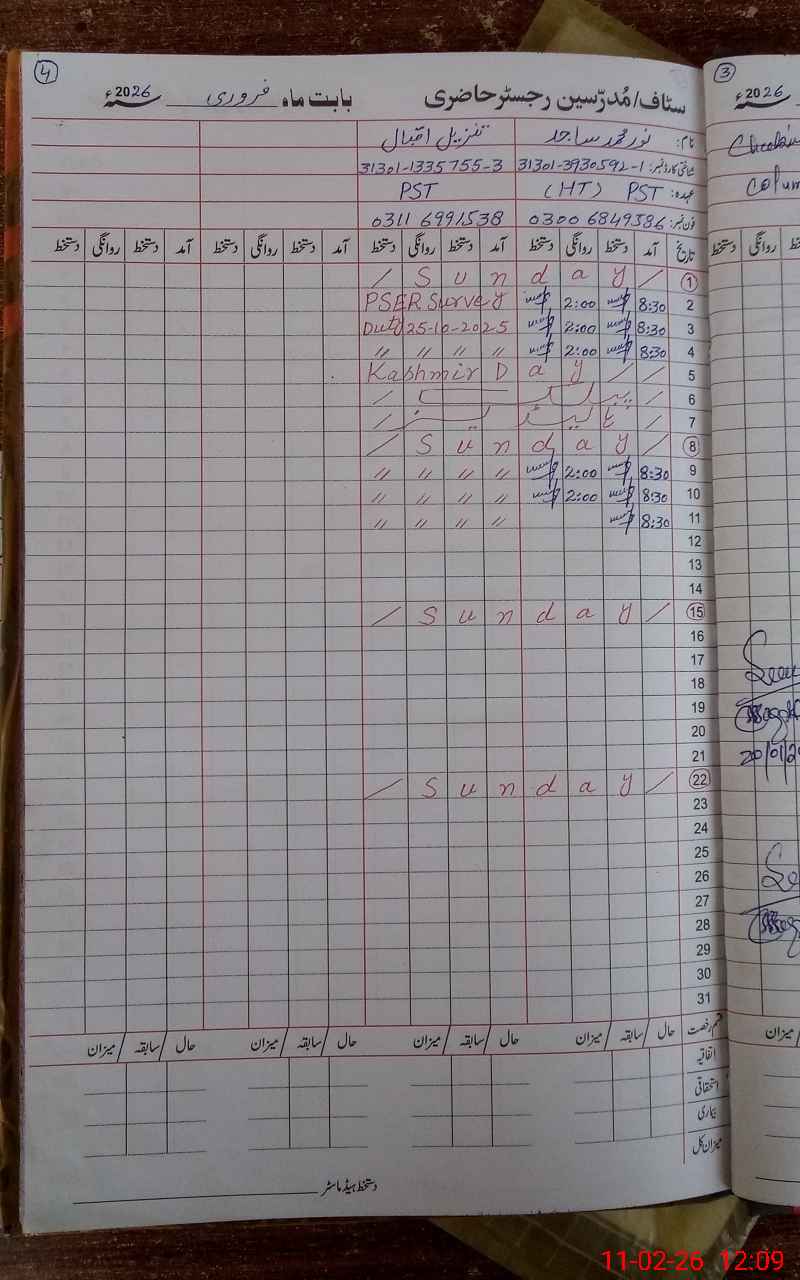 4
سٹاف/مُدرّسین رجسٹر حاضری بابت ماہ فروری 2026ء
نام: نور محمد ساجد تنزیل اقبال
شناختی کارڈ نمبر: 31301-3930592-1 31301-1335755-3
عہدہ: PST (HT) PST
فون نمبر: 0300 6849386 0311 6991538
تاریخ آمد دستخط روانگی دستخط آمد دستخط روانگی دستخط آمد دستخط روانگی دستخط آمد دستخط روانگی دستخط
1 / Sunday /
2 8:30 2:00 PSER Survey
3 8:30 2:00 Duty 25-10-2025
4 8:30 2:00 " " " "
5 / / Kashmir Day
6 / پبلک /
7 / /
8 / Sunday /
9 8:30 2:00 " " " "
10 8:30 2:00 " " " "
11 8:30 " " " "
12
13
14
15 / Sunday /
16
17
18
19
20
21
22 / Sunday /
23
24
25
26
27
28
29
30
31
قسم رخصت حال / سابقہ / میزان حال / سابقہ / میزان حال / سابقہ / میزان حال / سابقہ / میزان
اتفاقیہ
استحقاقی
بیماری
میزان کل
دستخط ہیڈ ماسٹر
3
2026ء
colum
روانگی دستخط
20/01/2
میزان
11-02-26 12:09